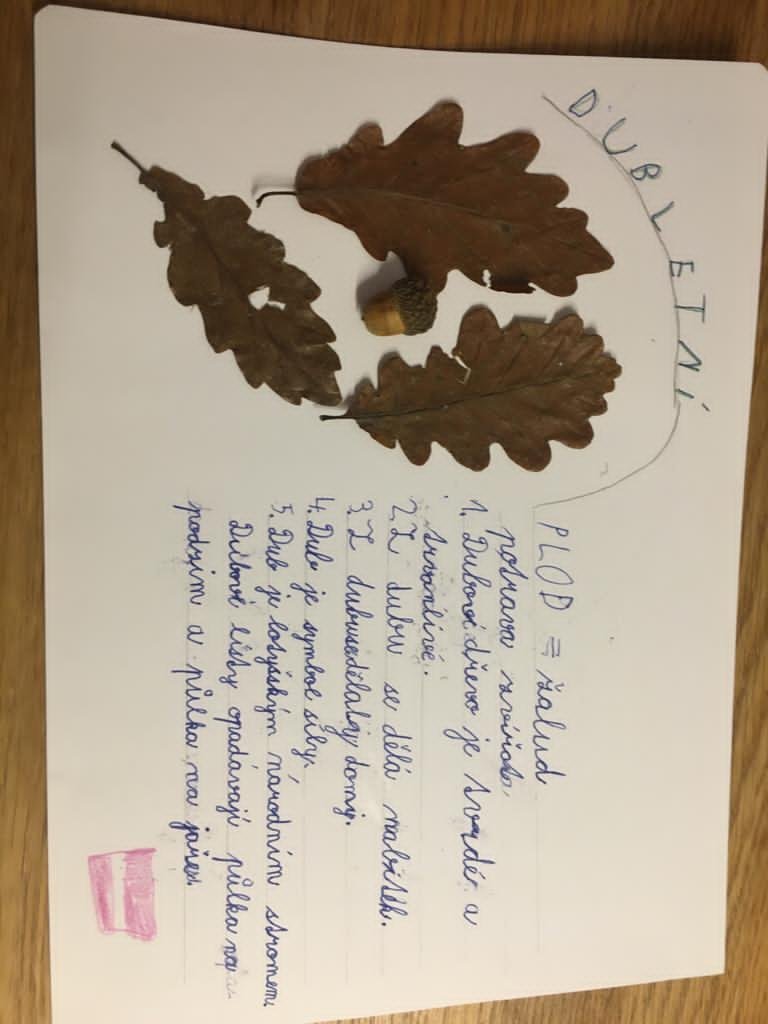 DUB LETNÍ
PLOD = žalud
potrava zvířat.
1. Dubové dřevo je tvrdé a
trvanlivé.
2. Z dubu se dělá nábytek.
3. Z dubu se dělaly domy.
4. Dub je symbol síly.
5. Dub je lotyšským národním stromem.
Dubové listy opadávají půlka na
podzim a půlka na jaře.